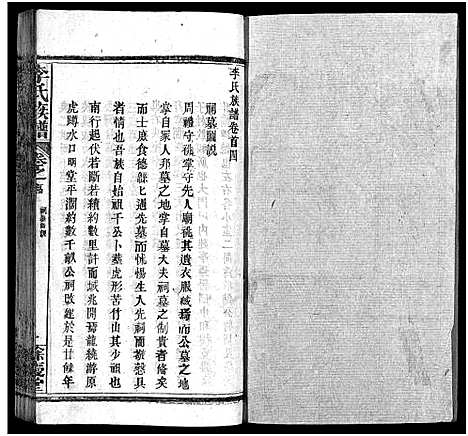 李氏族譜卷首四
祠墓圖說
周禮守祧掌守先人廟祧其遺衣服藏焉而公墓之地
掌自冢人邦墓之地掌自墓大夫祠墓之制貴者有之
而士庶食德
比過先墓而怵惕生入先祠而齋慤具
者情也吾族自始祖千公卜葬虎形苦竹山其少祖也
南行起伏若斷若續約數里許而城兆開焉龍繞游原
虎蹲水口明堂平濶約數千畝公祠啟建於是廿餘年
李氏族譜
卷之首
祠墓圖說